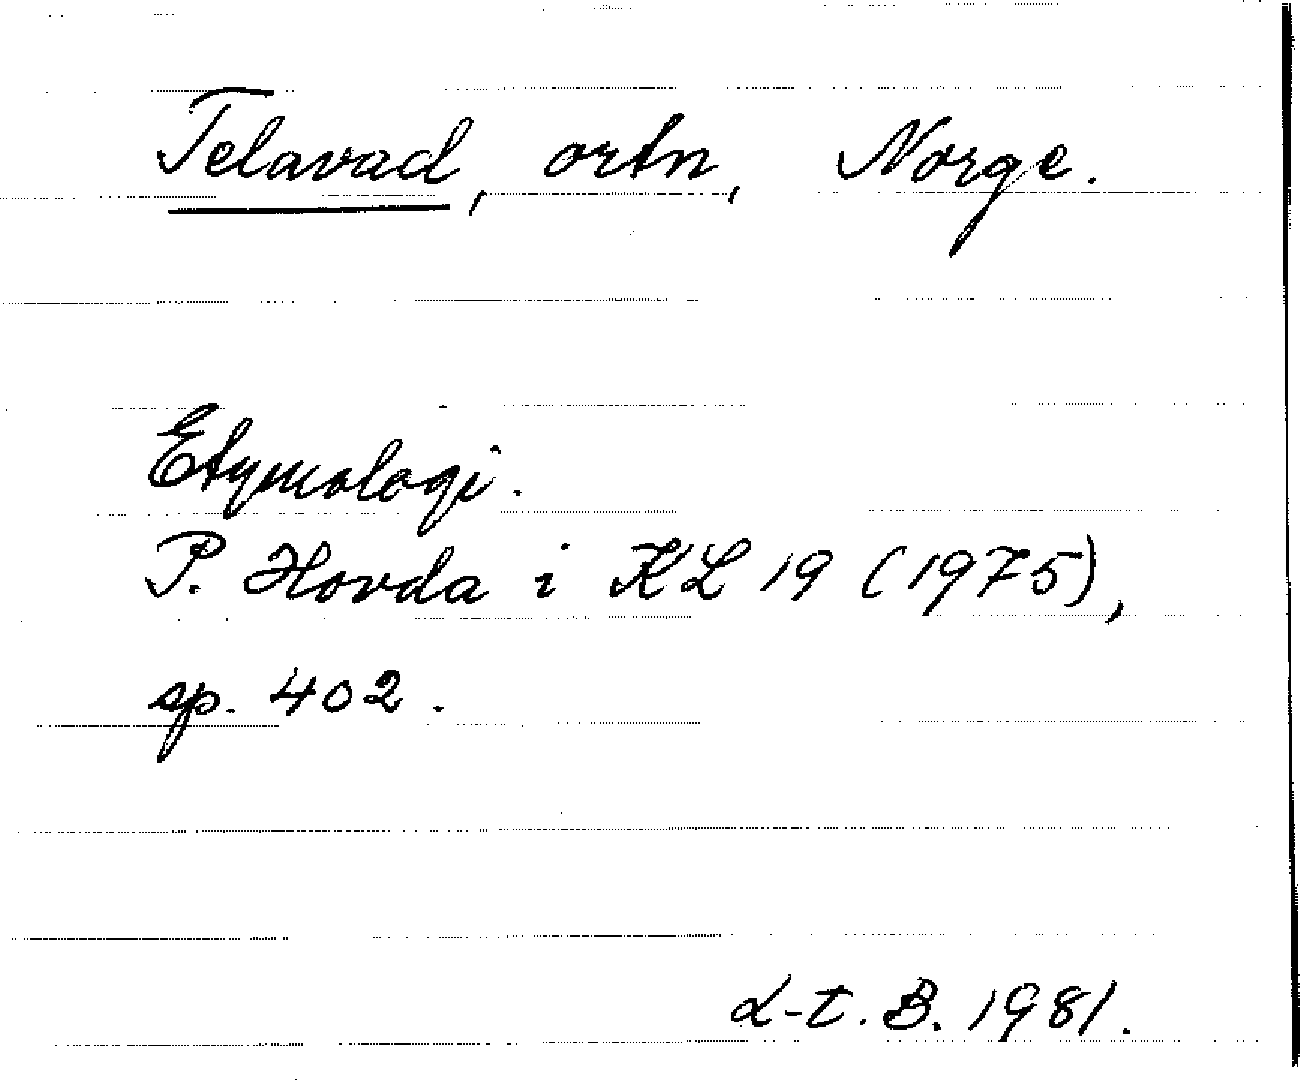 Telavad, ortn, Norge.
Etymologi.
P. Hovda i KL 19 (1975),
sp. 402.
L-t. B. 1981.